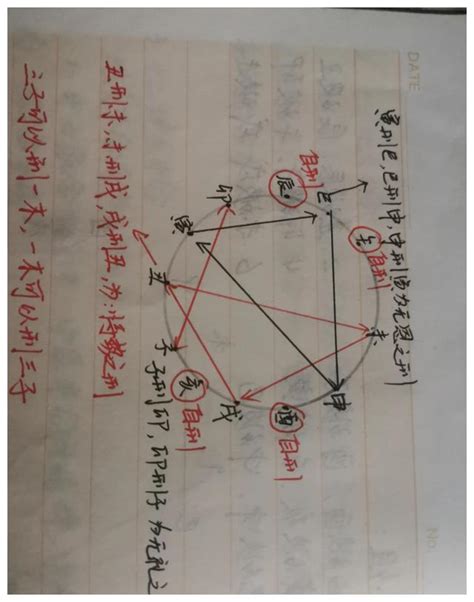 DATE
No.
寅刑巳,巳刑申,申刑寅为无恩之刑
巳
午 自刑
未
申
辰 自刑
酉 自刑
卯
寅
丑
子
亥 自刑
戌
子刑卯,卯刑子 为无礼之
丑刑未,未刑戌,戌刑丑,为:之刑
三子可以刑一木,一木可以刑三子